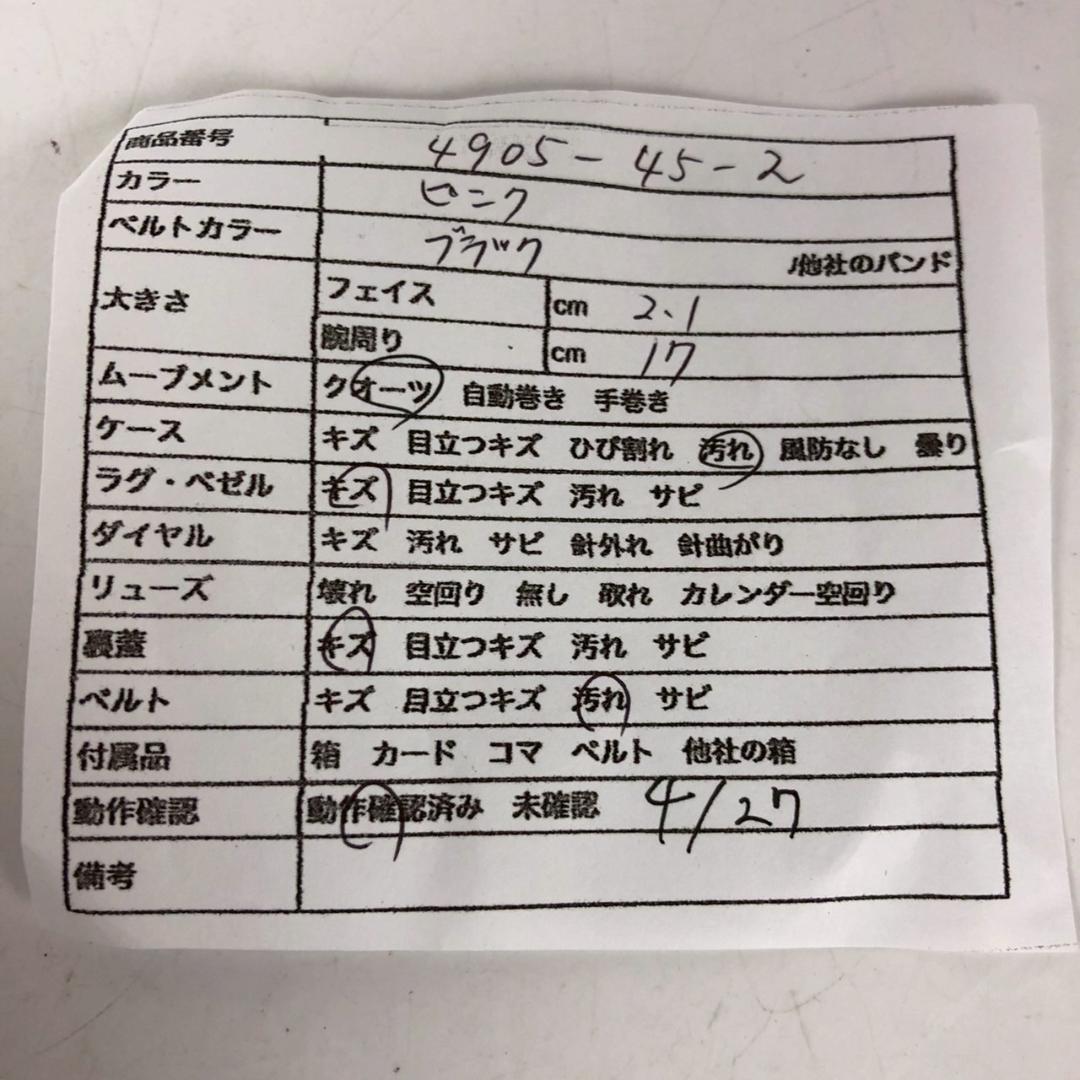 商品番号 4905-45-2
カラー ピンク
ベルトカラー ブラック /他社のバンド
大きさ フェイス cm 2.1
腕周り cm 17
ムーブメント クオーツ 自動巻き 手巻き
ケース キズ 目立つキズ ひび割れ 汚れ 風防なし 曇り
ラグ・ベゼル キズ 目立つキズ 汚れ サビ
ダイヤル キズ 汚れ サビ 針外れ 針曲がり
リューズ 壊れ 空回り 無し 取れ カレンダー空回り
裏蓋 キズ 目立つキズ 汚れ サビ
ベルト キズ 目立つキズ 汚れ サビ
付属品 箱 カード コマ ベルト 他社の箱
動作確認 動作確認済み 未確認 4/27
備考